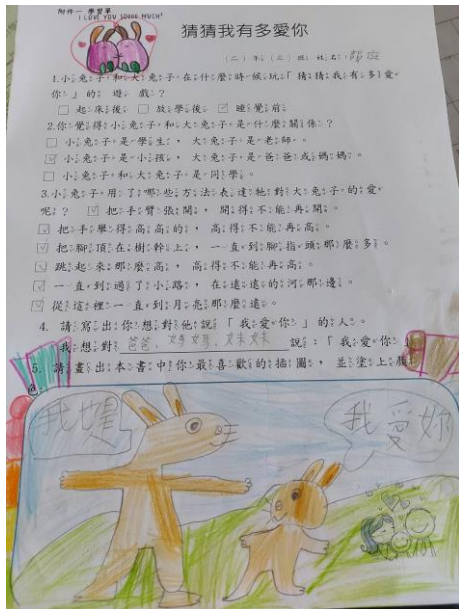 附件一 學習單
I LOVE YOU SOOOO MUCH!
猜猜我有多愛你
(二)年(三)班 姓名:
1.小兔子和大兔子在什麼時候玩「猜猜我有多愛
你」的遊戲?
□ 起床後 □ 放學後 ☑ 睡覺前
2.你覺得小兔子和大兔子是什麼關係?
□ 小兔子是學生,大兔子是老師。
☑ 小兔子是小孩,大兔子是爸爸或媽媽。
□ 小兔子和大兔子是同學。
3.小兔子用了哪些方法表達牠對大兔子的愛
呢? ☑ 把手臂張開,開得不能再開。
☑ 把手舉得高高的,高得不能再高。
☑ 把腳頂在樹幹上,一直到腳指頭那麼多。
☑ 跳起來那麼高,高得不能再高。
☑ 一直到過了小路,在遠遠的河那邊。
☑ 從這裡一直到月亮那麼遠。
4. 請寫出你想對他說「我愛你」的人。
我想對 爸爸、媽媽、妹妹 說:「我愛你
5. 請畫出本書中你最喜歡的插圖,並塗上顏
我 我愛妳